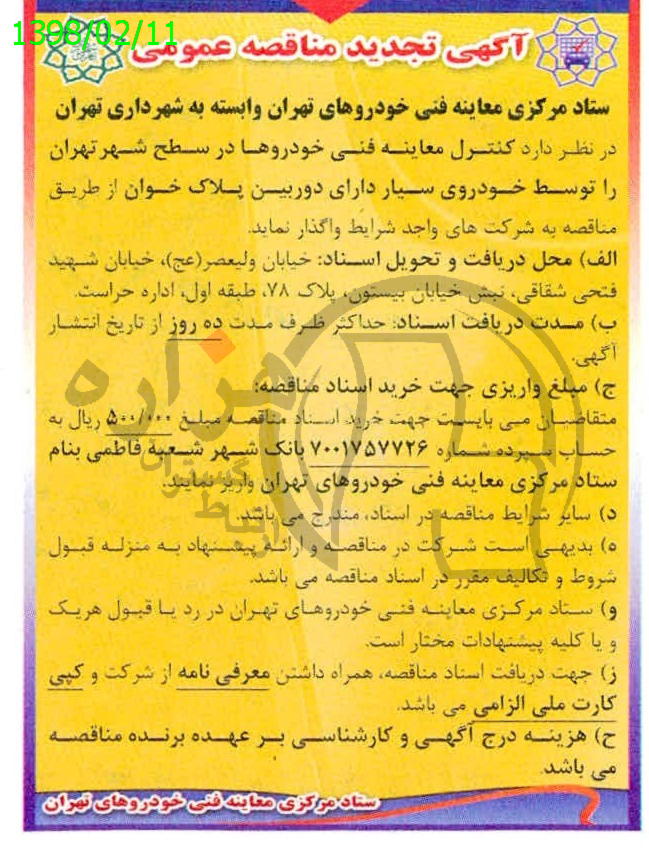 1398/02/11
آگهی تجدید مناقصه عمومی
ستاد مرکزی معاینه فنی خودروهای تهران وابسته به شهرداری تهران
در نظر دارد کنترل معاینه فنی خودروها در سطح شهر تهران
را توسط خودروی سیار دارای دوربین پلاک خوان از طریق
مناقصه به شرکت های واجد شرایط واگذار نماید.
الف) محل دریافت و تحویل اسناد: خیابان ولیعصر(عج)، خیابان شهید
فتحی شقاقی، نبش خیابان بیستون، پلاک ۷۸، طبقه اول، اداره حراست.
ب) مدت دریافت اسناد: حداکثر ظرف مدت ده روز از تاریخ انتشار
آگهی.
ج) مبلغ واریزی جهت خرید اسناد مناقصه:
متقاضیان می بایست جهت خرید اسناد مناقصه مبلغ ۵۰۰/۰۰۰ ریال به
حساب سپرده شماره ۷۰۰۱۷۵۷۷۲۶ بانک شهر شعبه فاطمی بنام
ستاد مرکزی معاینه فنی خودروهای تهران واریز نمایند.
د) سایر شرایط مناقصه در اسناد، مندرج می باشد.
ه) بدیهی است شرکت در مناقصه و ارائه پیشنهاد به منزله قبول
شروط و تکالیف مقرر در اسناد مناقصه می باشد.
و) ستاد مرکزی معاینه فنی خودروهای تهران در رد یا قبول هریک
و یا کلیه پیشنهادات مختار است.
ز) جهت دریافت اسناد مناقصه، همراه داشتن معرفی نامه از شرکت و کپی
کارت ملی الزامی می باشد.
ح) هزینه درج آگهی و کارشناسی بر عهده برنده مناقصه
می باشد.
ستاد مرکزی معاینه فنی خودروهای تهران
هزاره